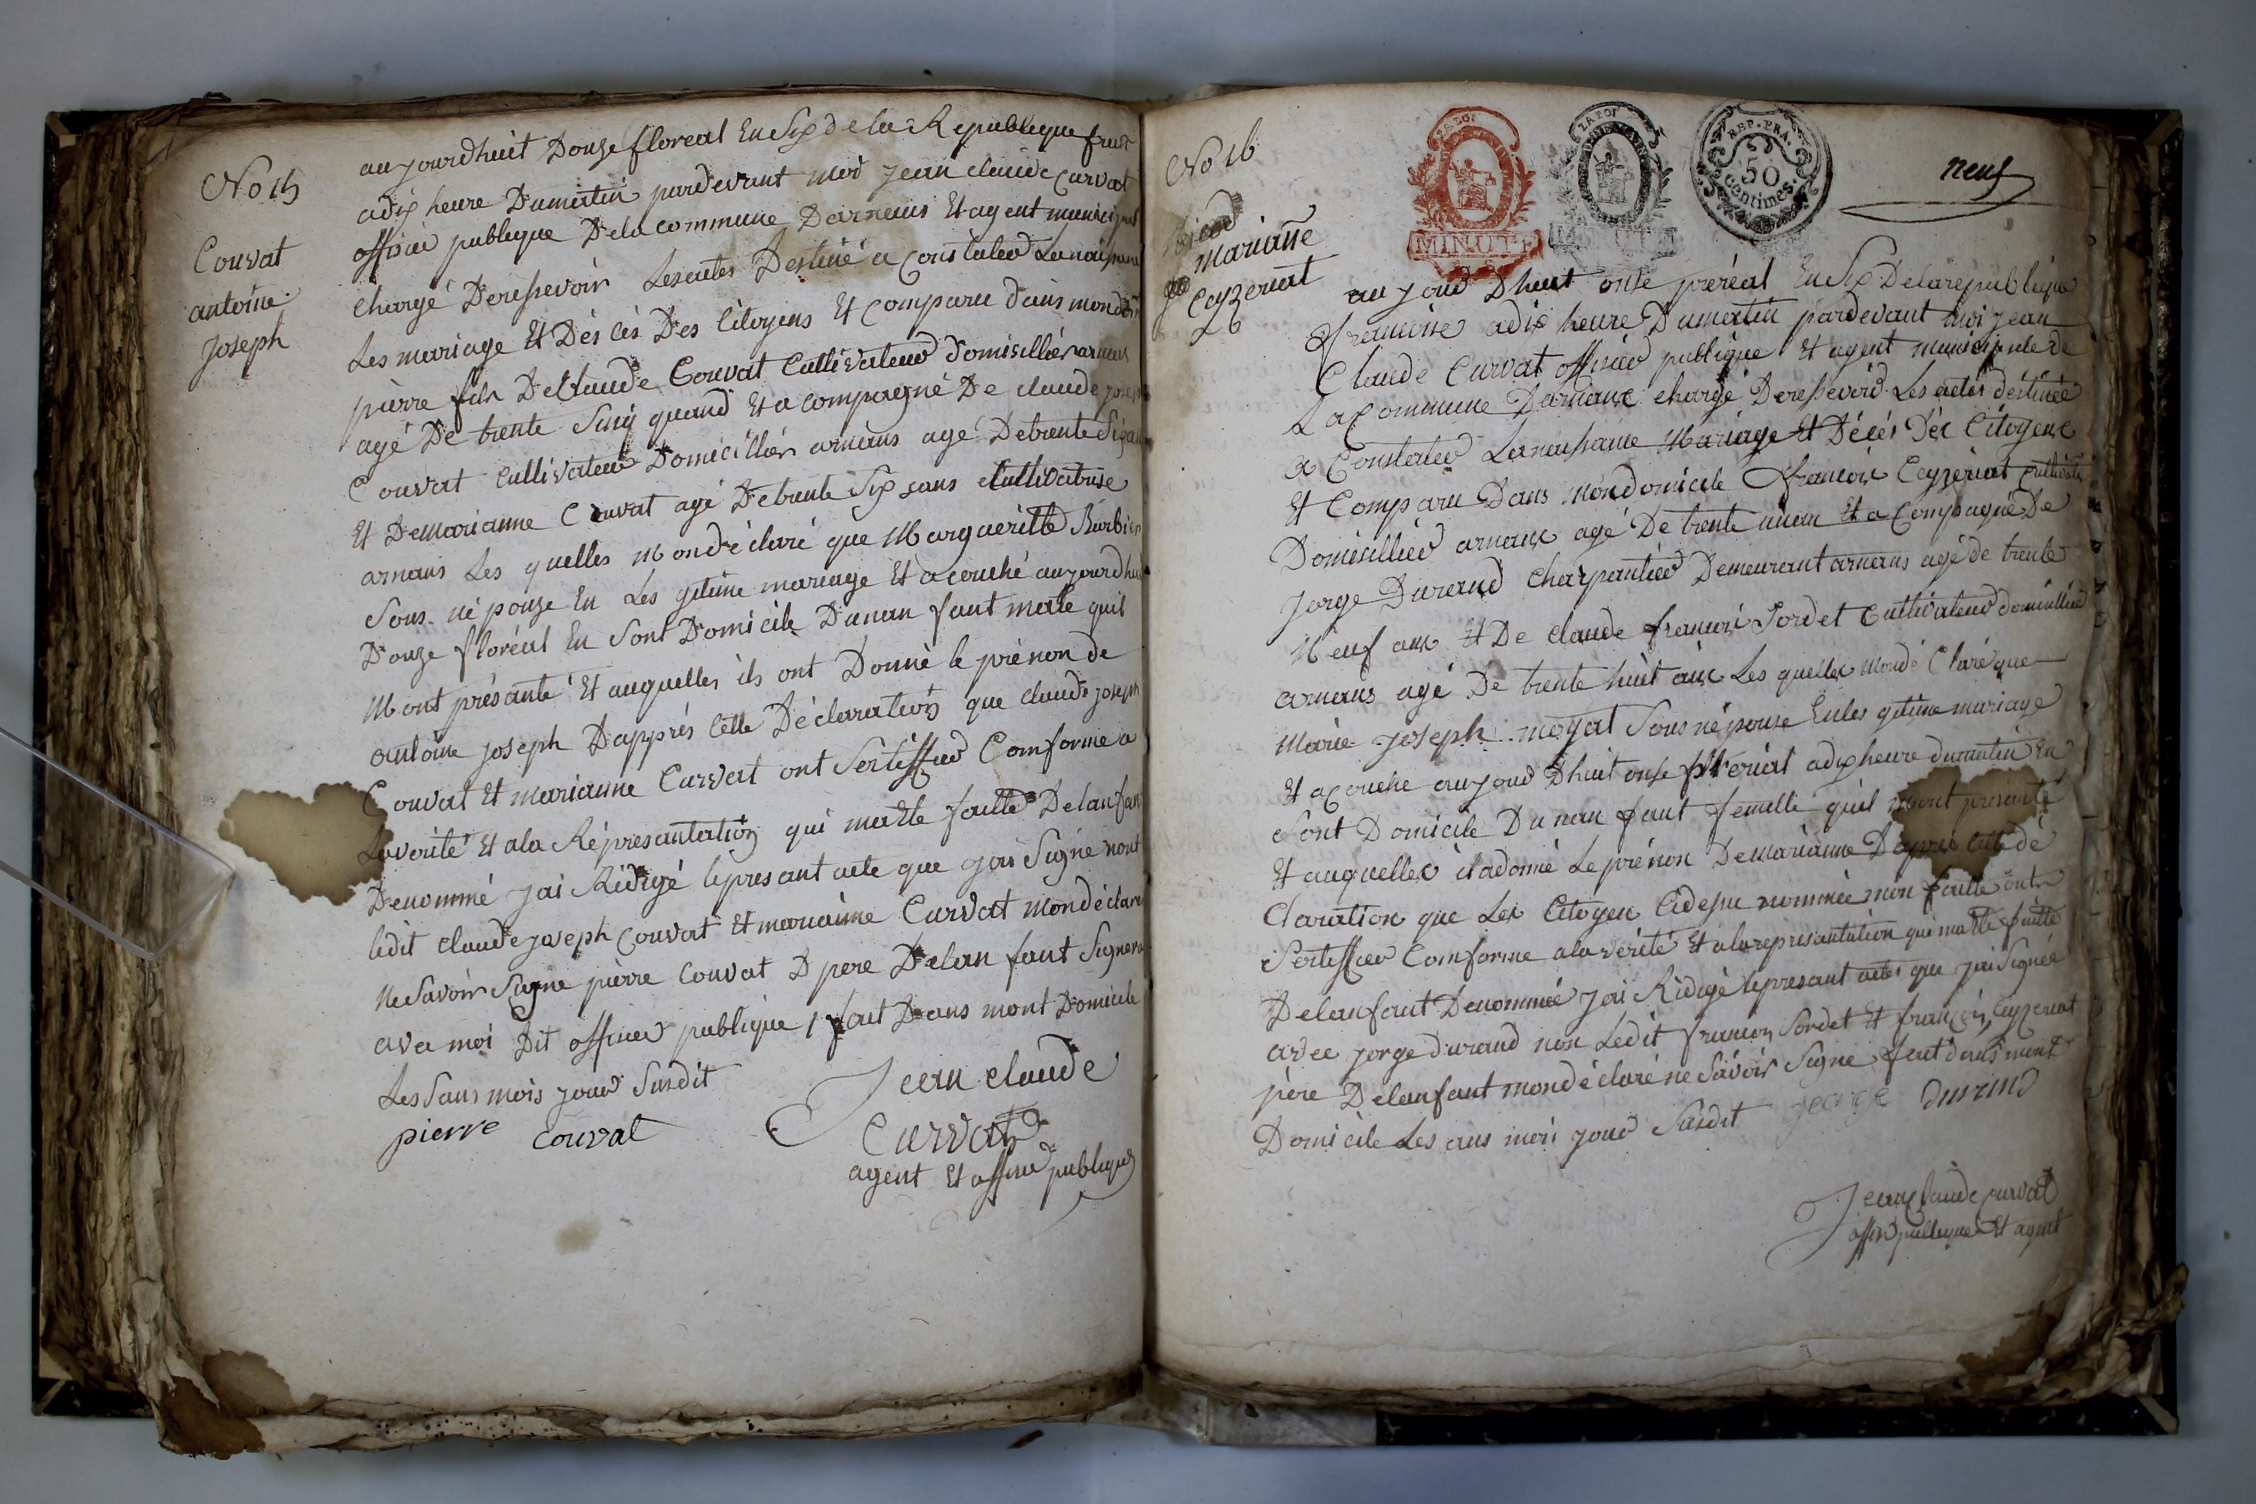 No 15
Couvat
antoine
joseph
aujourdhuit Douze floreal En Six de la Republique
a dix heure Dumatin pardevant moi jean claude curvat
officié publique De la commune Darnans Et agent municipal
chargé Deressevoir Les actes Destiné a Constater La naissance
Les mariage Et Déscès Des Citoyens Et Comparu dans mondom
pièrre fils De Claude Couvat Cultivateur Domisillié arnans
agé De trente Sinq Et acompagné De claude joseph
Couvat Cultivateur Domicillier arnans agé Detrente Six
Et Demarianne Couvat agé Detrente Six ans Cultivatrise
arnans Les quelles Mondéclaré que Margueritte
Sous népouze En Les gitime mariage Et acouché aujourdhui
Douze floréal En Sont Domicile Dunan fant male quil
Mont présanté Et auquelles ils ont Donné le prénon de
antoine joseph Dapprés Cette Déclaration que claude joseph
Couvat Et marianne Curvat ont Sertiffier Comforme a
Laverité Et ala Répresantation qui matte faitte Delanfant
Denommé jai Ridigé lepresant acte que jai Signé nont
ledit claude joseph Couvat Et marianne Curvat mondéclaré
Ne Savoir Signe pièrre Couvat D pere Delan fant Signera
avec moi Dit officier publique fait Dans mont Domicile
Les Sans mois jour Susdit
pierre couvat
Jean claude
Curvat
agent Et officié publique
No 16
marianne
Ceyzeriat
LA LOI
MINUTE
LA LOI
REP. FRA.
50
centimes.
neuf
aujour Dhuit onse preréal En Six De larépublique
franscoise a dix heure Dumatin pardevant moi jean
Claude Curvat officier publique Et agent municipale de
La Commune Darnans chargé Deressevoir Les actes déstinée
a Constater Lanaissance Mariage Et Décés Dés Citoyens
Et Comparu Dans mondomicile francois Ceyzeriat
Domicillier arnans agé De trente unan Et a Compagné De
jorge Durand Charpantiér Demeurant arnans agé de trente
Neuf ans Et De claude francois Sordet Cultivateur domicillier
arnans agé De trente huit ans Les quelles mondé Claré que
Marie joseph moyat Sous népouse En les gitime mariage
Et acouche aujour Dhuit onse a dix heure dumatin En
Sont Domicile Du nan fant femelle quil mont présanté
Et auquelles ila donné Le prénon De marianne Dapres Cette dé
Claration que Les Citoyen Cidessu nommée mon faitte ont
Sertiffier Comforme ala vérité Et ala représantation qui matte faitte
Delanfant Denommée jai Ridigé lepresant actes que jai Signée
avec jorge durand non Ledit francois Sordet Et francois Ceyzeriat
père Delanfant mondéclaré ne Savoir Signe fait dans mont
Domicile Les ans mois jour Susdit jeorge durand
Jean Claude Curvat
offié publique Et agent